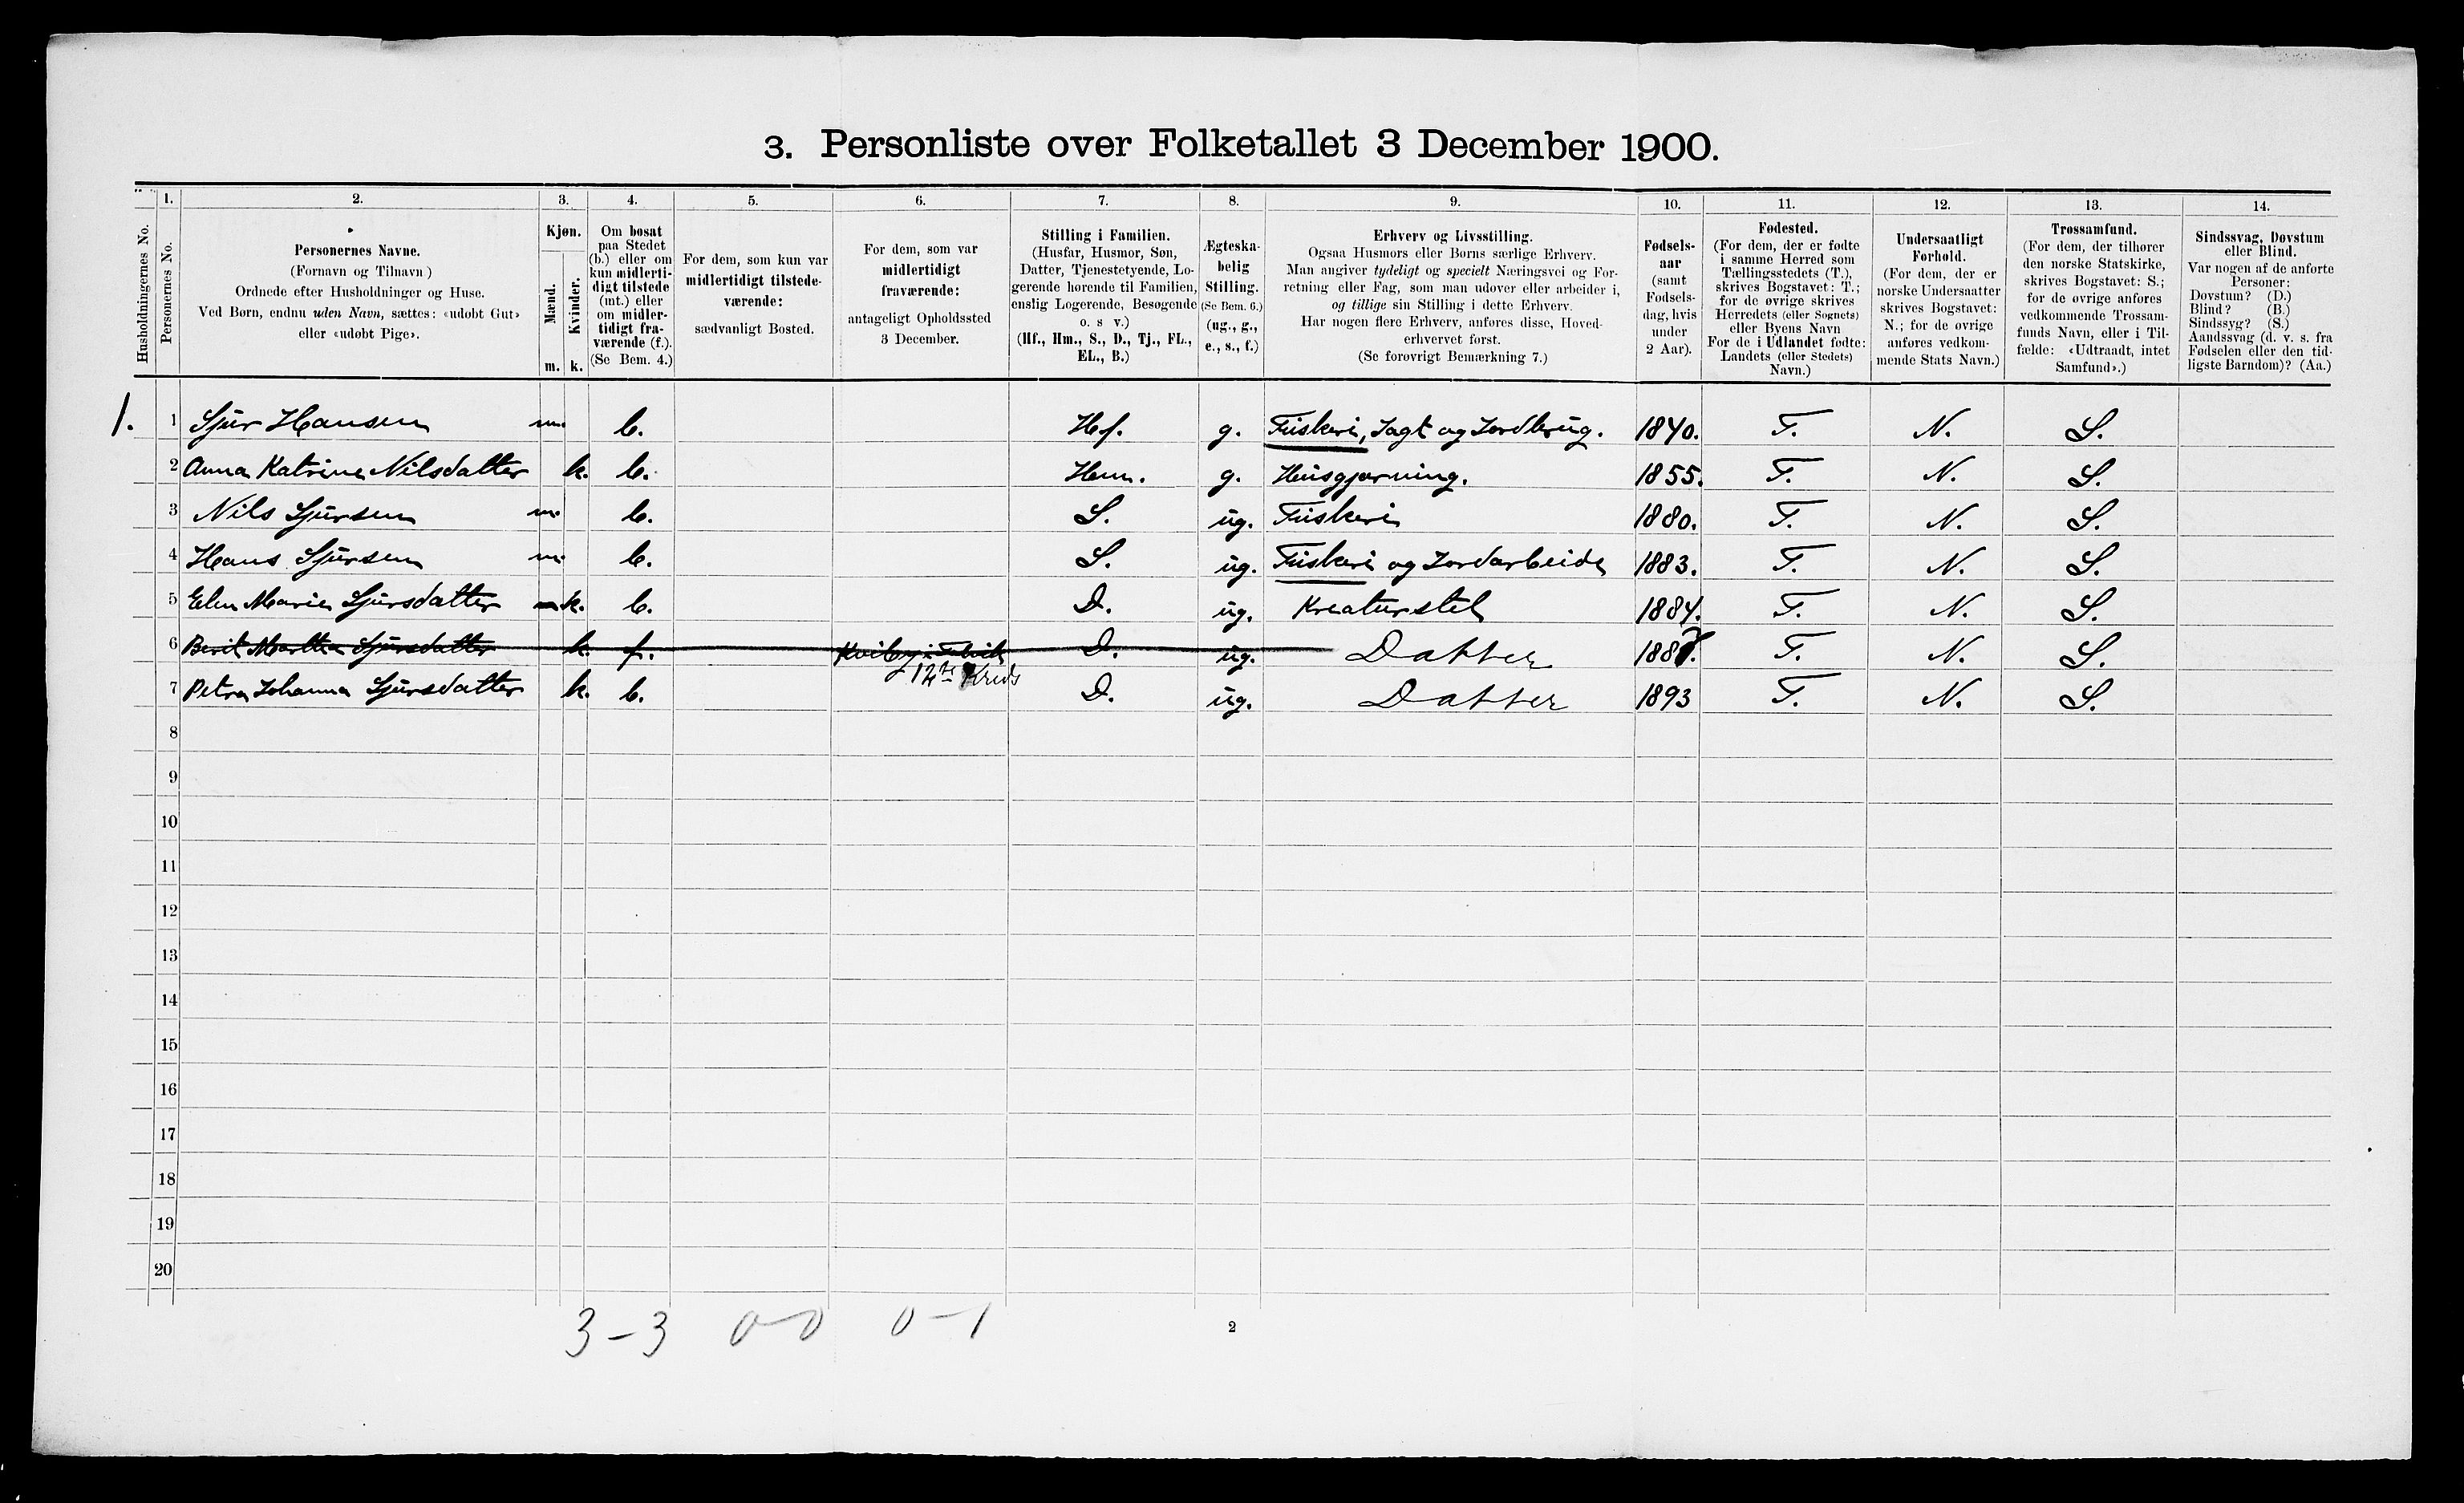 3. Personliste over Folketallet 3 December 1900.
1. 2. 3. 4. 5. 6. 7. 8. 9. 10. 11. 12. 13. 14.
Husholdningernes No.
Personernes No.
Personernes Navne.
(Fornavn og Tilnavn)
Ordnede efter Husholdninger og Huse.
Ved Børn, endnu uden Navn, sættes: «udøbt Gut»
eller «udøbt Pige».
Kjøn.
Mænd.
Kvinder.
m. k.
Om bosat
paa Stedet
(b.) eller om
kun midlerti-
digt tilstede
(mt.) eller
om midler-
tidigt fra-
værende (f.).
(Se Bem. 4.)
For dem, som kun var
midlertidigt tilstede-
værende:
sædvanligt Bosted.
For dem, som var
midlertidigt
fraværende:
antageligt Opholdssted
3 December.
Stilling i Familien.
(Husfar, Husmor, Søn,
Datter, Tjenestetyende, Lo-
gerende hørende til Familien,
enslig Logerende, Besøgende
o. s v.)
(Hf., Hm., S., D., Tj., FL.,
EL., B.)
Ægteska-
belig
Stilling.
(Se Bem. 6.)
(ug., g.,
e., s., f.)
Erhverv og Livsstilling.
Ogsaa Husmors eller Børns særlige Erhverv.
Man angiver tydeligt og specielt Næringsvei og For-
retning eller Fag, som man udøver eller arbeider i,
og tillige sin Stilling i dette Erhverv.
Har nogen flere Erhverv, anføres disse, Hoved-
erhvervet først.
(Se forøvrigt Bemærkning 7.)
Fødsels-
aar
(samt
Fødsels-
dag, hvis
under
2 Aar).
Fødested.
(For dem, der er fødte
i samme Herred som
Tællingsstedets (T.),
skrives Bogstavet: T.;
for de øvrige skrives
Herredets (eller Sognets)
eller Byens Navn
For de i Udlandet fødte:
Landets (eller Stedets)
Navn.)
Undersaatligt
Forhold.
(For dem, der er
norske Undersaatter
skrives Bogstavet:
N.; for de øvrige
anføres vedkom-
mende Stats Navn.)
Trossamfund.
(For dem, der tilhører
den norske Statskirke,
skrives Bogstavet: S.;
for de øvrige anføres
vedkommende Trossam-
funds Navn, eller i Til-
fælde: «Udtraadt, intet
Samfund».)
Sindssvag, Døvstum
eller Blind.
Var nogen af de anførte
Personer:
Døvstum? (D.)
Blind? (B.)
Sindssyg? (S.)
Aandssvag (d. v. s. fra
Fødselen eller den tid-
ligste Barndom)? (Aa.)
1. 1 Sjur Hansen m. b. Hf. g. Fiskeri, Jagt og Jordbrug. 1840. T. N. S.
2 Anna Katrine Nilsdatter k. b. Hm. g. Husgjerning. 1855. T. N. S.
3 Nils Sjursen m. b. S. ug. Fiskeri 1880. T. N. S.
4 Hans Sjursen m. b. S. ug. Fiskeri og Jordarbeide 1883. T. N. S.
5 Elen Marie Sjursdatter k. b. D. ug. Kreaturstel 1884. T. N. S.
6 Berit Marthea Sjursdatter k. f. Kviby i Talvik D. ug. Datter T. N. S.
12te Kreds
7 Petra Johanna Sjursdatter k. b. D. ug. Datter 1893 T. N. S.
8
9
10
11
12
13
14
15
16
17
18
19
20
3-3 0-0 0-1
2